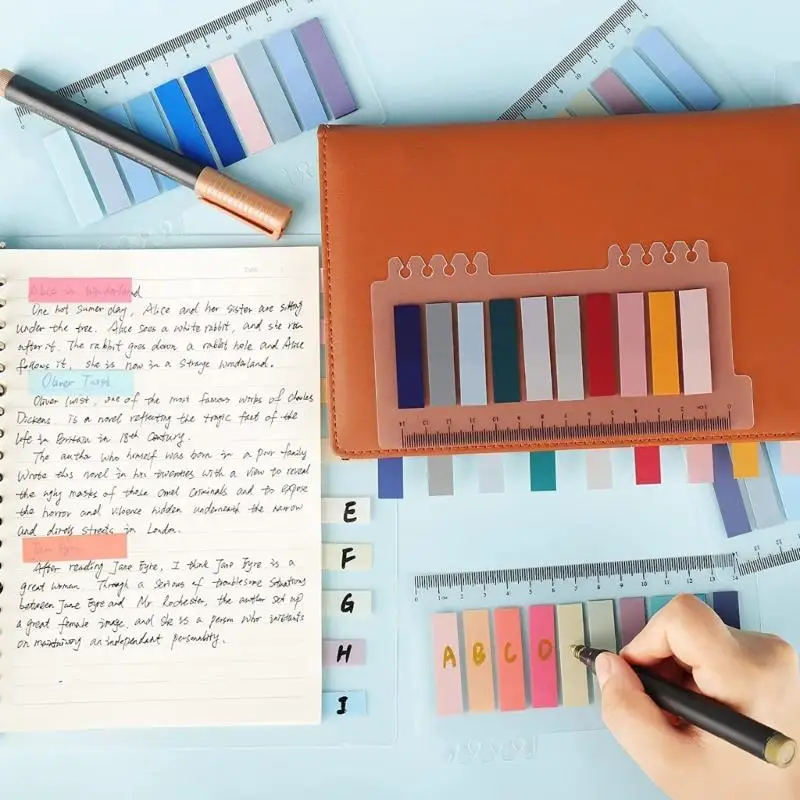 Alice in Wonderland
One hot sumer day, Alice and her sister are sitting
under the tree. Alice sees a white rabbit, and she run
after it. The rabbit goes down a rabbit hole and Alice
follows it, she is now in a strange wonderland.
Oliver Twist
Oliver Twist, one of the most famous works of Charles
Dickens. is a novel reflecting the tragic fact of the
life in Britain in 18th Century.
The author who himself was born in a poor family
wrote this novel in his twenties with a view to reveal
the ugly masks of those cruel criminals and to expose
the horror and violence hidden underneath the narrow
and streets in London.
Jane Eyre
After reading Jane Eyre, I think Jane Eyre is a
great woman. Through a serious of troublesome situations
between Jane Eyre and Mr Rochester, the author set up
a great female image, and she is a person who insistants
on maintaining an independant personality.
E
F
G
H
I
A B C D